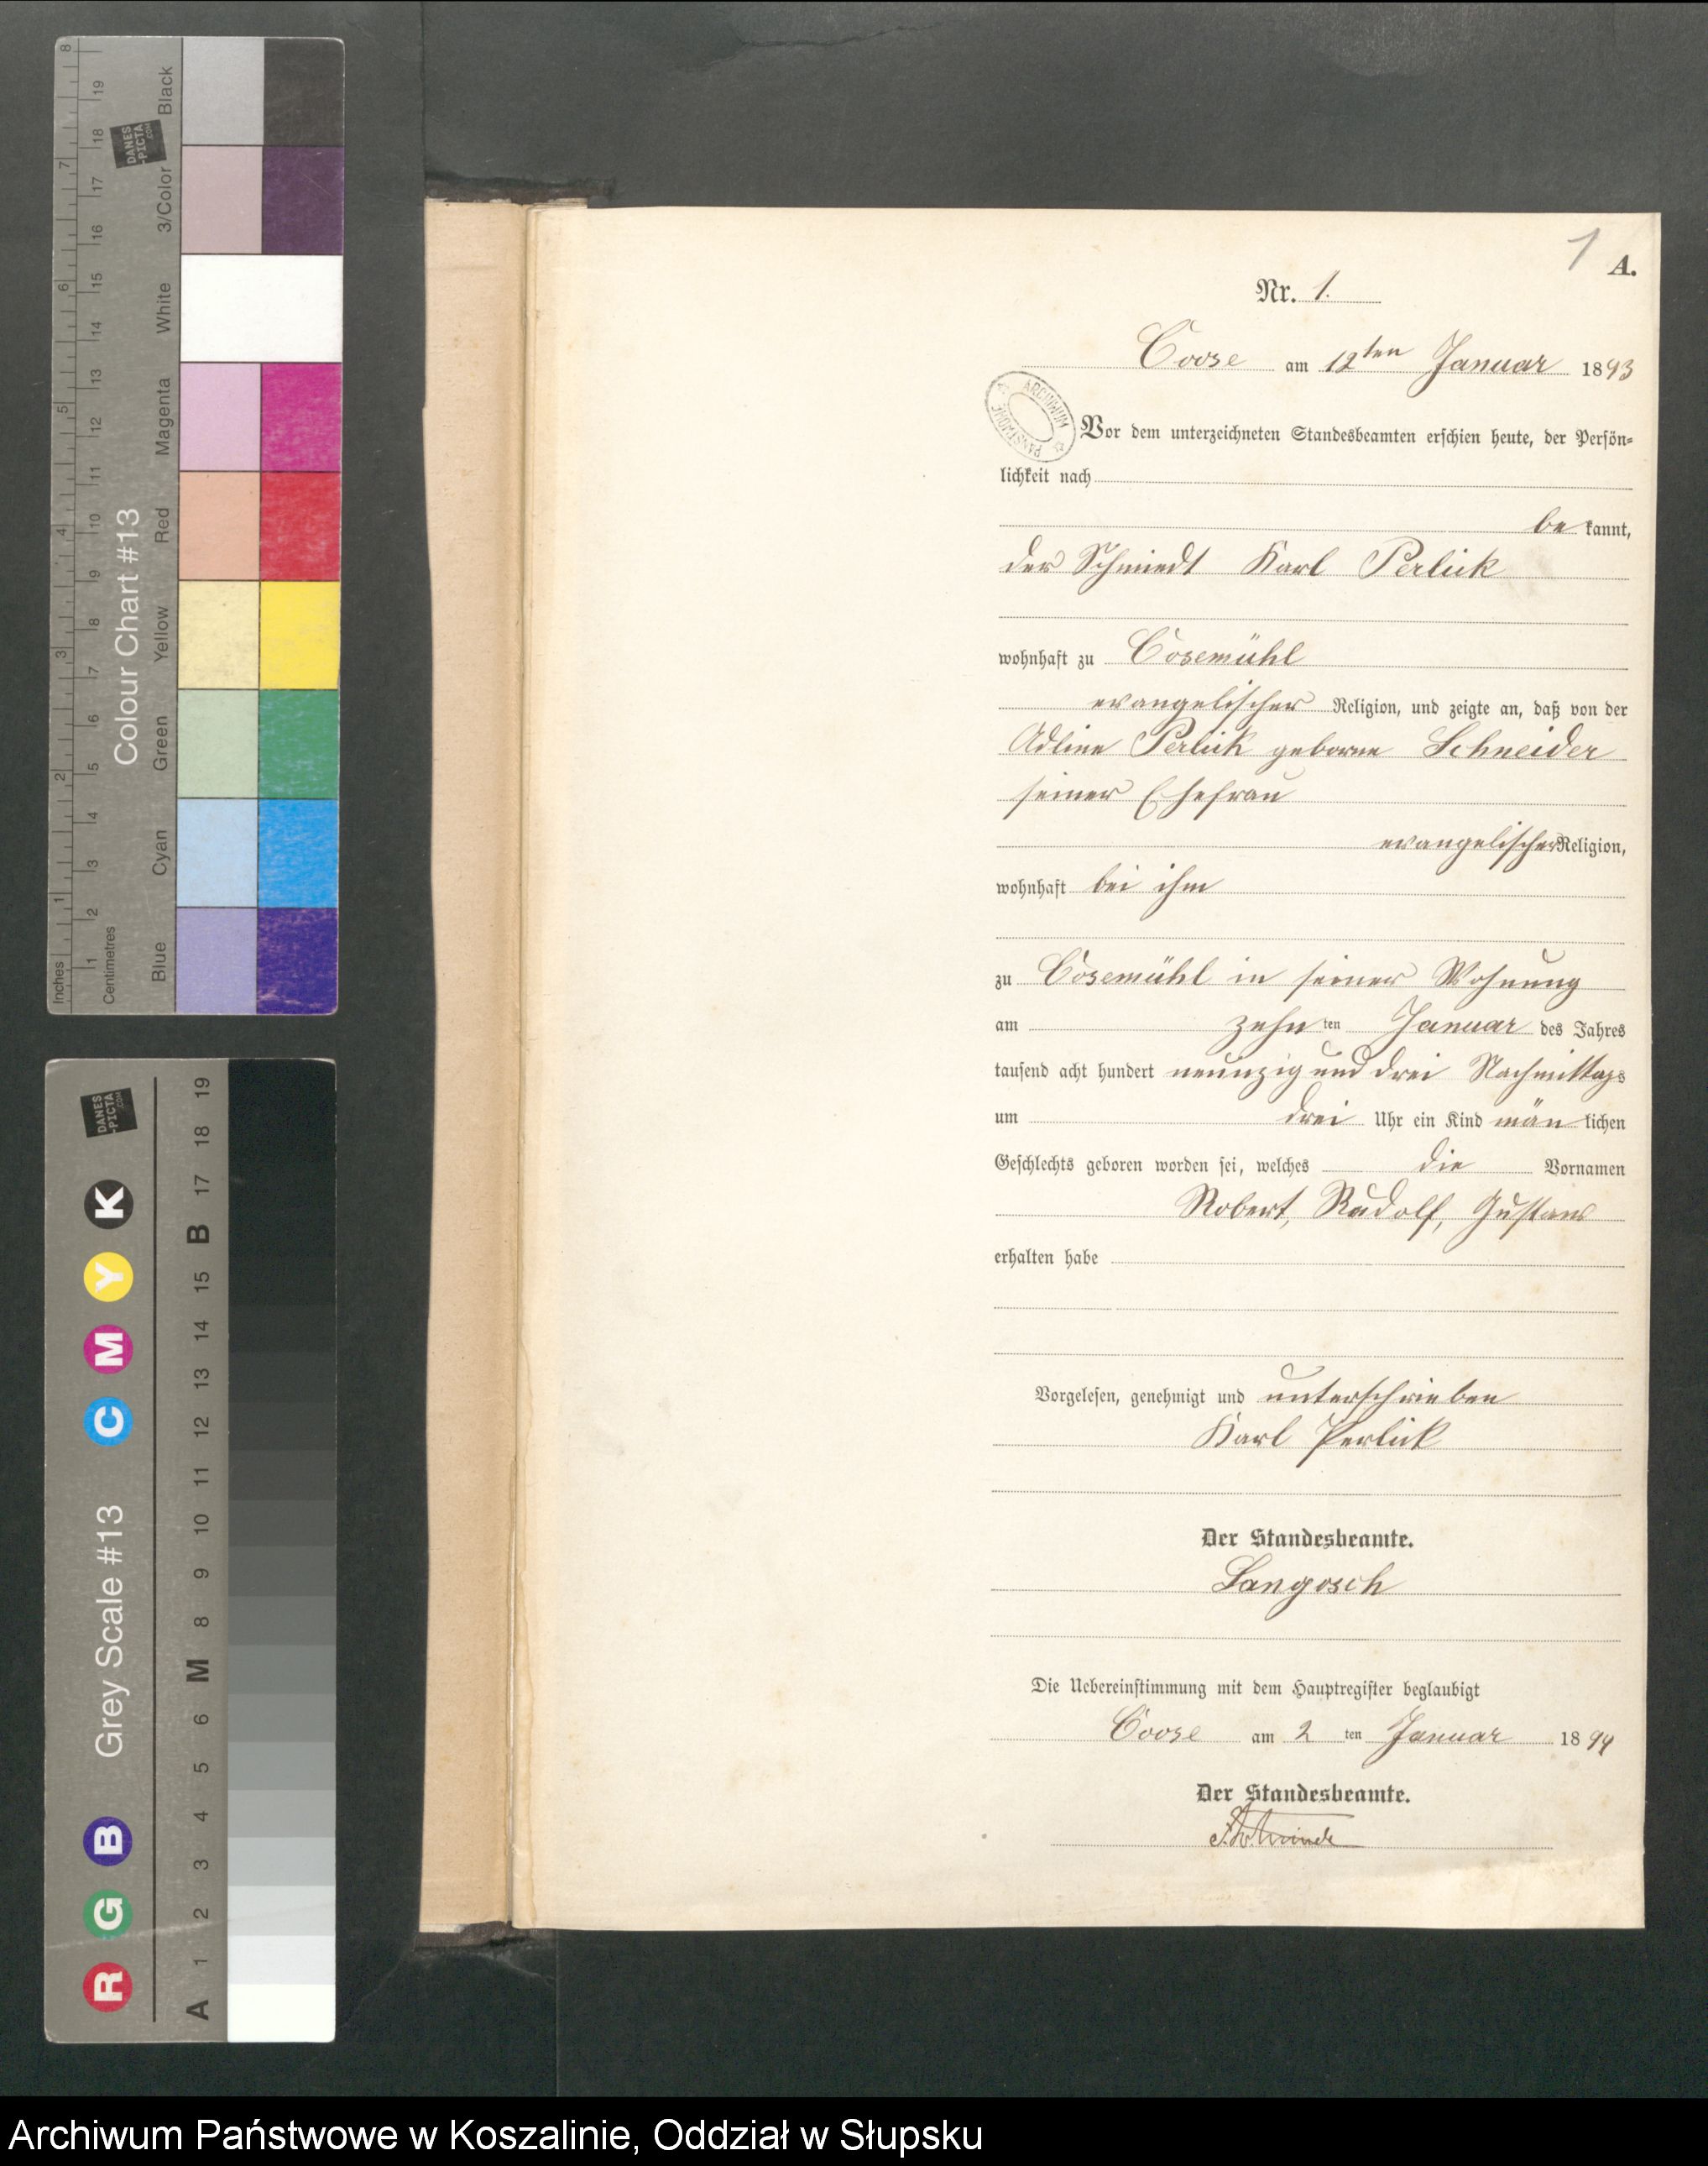 8
19
Black
DANES
-PICTA
.COM
18
7
17
3/Color
16
6
15
White
14
13
5
12
Magenta
11
4
10
Red
Colour Chart #13
9
8
Yellow
3
7
6
Green
2
5
4
Cyan
3
1
2
1
Blue
Inches
Centimetres
DANES
-PICTA
.COM
19
18
K
17
B
Y
15
14
M
13
C
12
11
Grey Scale #13
10
9
8
M
6
5
B
4
3
G
2
R
1
A
1
A.
Nr. 1.
Coose am 12ten Januar 1893
ARCHIWUM PAŃSTWOWE
Vor dem unterzeichneten Standesbeamten erschien heute, der Persön-
lichkeit nach
be kannt,
der Schmiedt Karl Perlick
wohnhaft zu Cosemühl
evangelischer Religion, und zeigte an, daß von der
Adline Perlick geborne Schneider
seiner Ehefrau
evangelischer Religion,
wohnhaft bei ihm
zu Cosemühl in seiner Wohnung
am zehn ten Januar des Jahres
tausend acht hundert neunzig und drei Nachmittags
um drei Uhr ein Kind män lichen
Geschlechts geboren worden sei, welches die Vornamen
Robert, Rudolf, Gustav
erhalten habe
Vorgelesen, genehmigt und unterschrieben
Karl Perlick
Der Standesbeamte.
Langosch
Die Uebereinstimmung mit dem Hauptregister beglaubigt
Coose am 2 ten Januar 1894
Der Standesbeamte.
Archiwum Państwowe w Koszalinie, Oddział w Słupsku